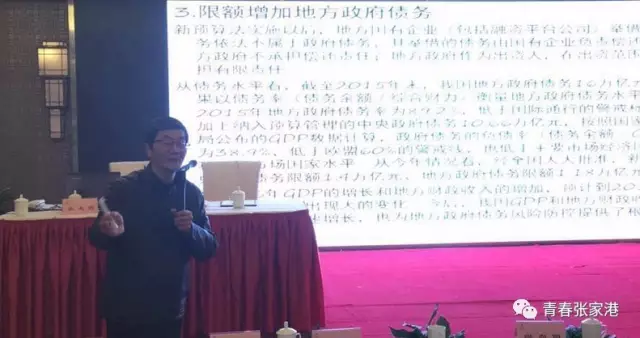 3.限额增加地方政府债务
新预算法实施以后，地方国有企业（包括融资平台公司）举借
务依法不属于政府债务，其举借的债务由国有企业负责偿还
方政府不承担偿还责任；地方政府作为出资人，在出资范围
担有限责任
从债务水平看，截至2015年末，我国地方政府债务16万亿元
果以债务率（债务余额/综合财力）衡量地方政府债务水平
2015年地方政府债务率为89.2%，低于国际通行的警戒
加上纳入预算管理的中央政府债务10.66万亿元，按照国家
局公布的GDP数据计算，政府债务的负债率（债务余额
为38.9%，低于欧盟60%的警戒线，也低于主要市场经济国
场国家水平 从今年情况看，经全国人大批准，新
务限额1.4万亿元，地方政府债务限额1.18万亿元
GDP的增长和地方财政收入的增加，预计到20
出现大的变化 我国GDP和地方财政收
增长，也为地方政府债务风险防控提供了根
青春张家港